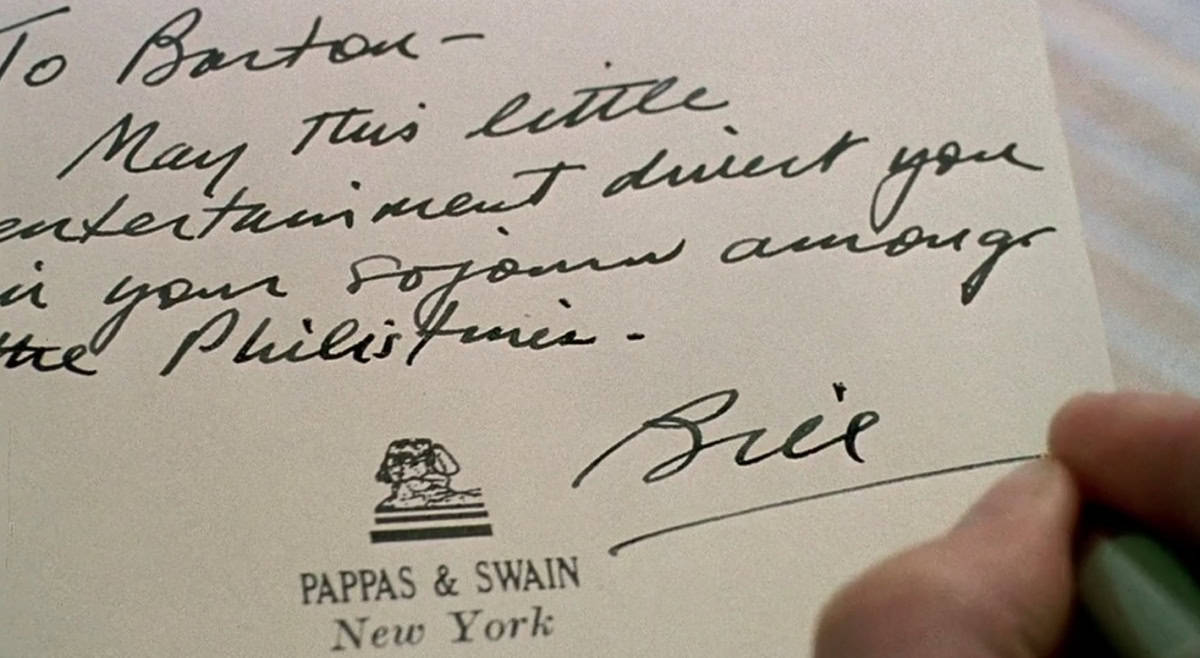 To Barton—
May this little
entertainment divert you
in your sojourn among
the Philistines.
Bill
PAPPAS & SWAIN
New York